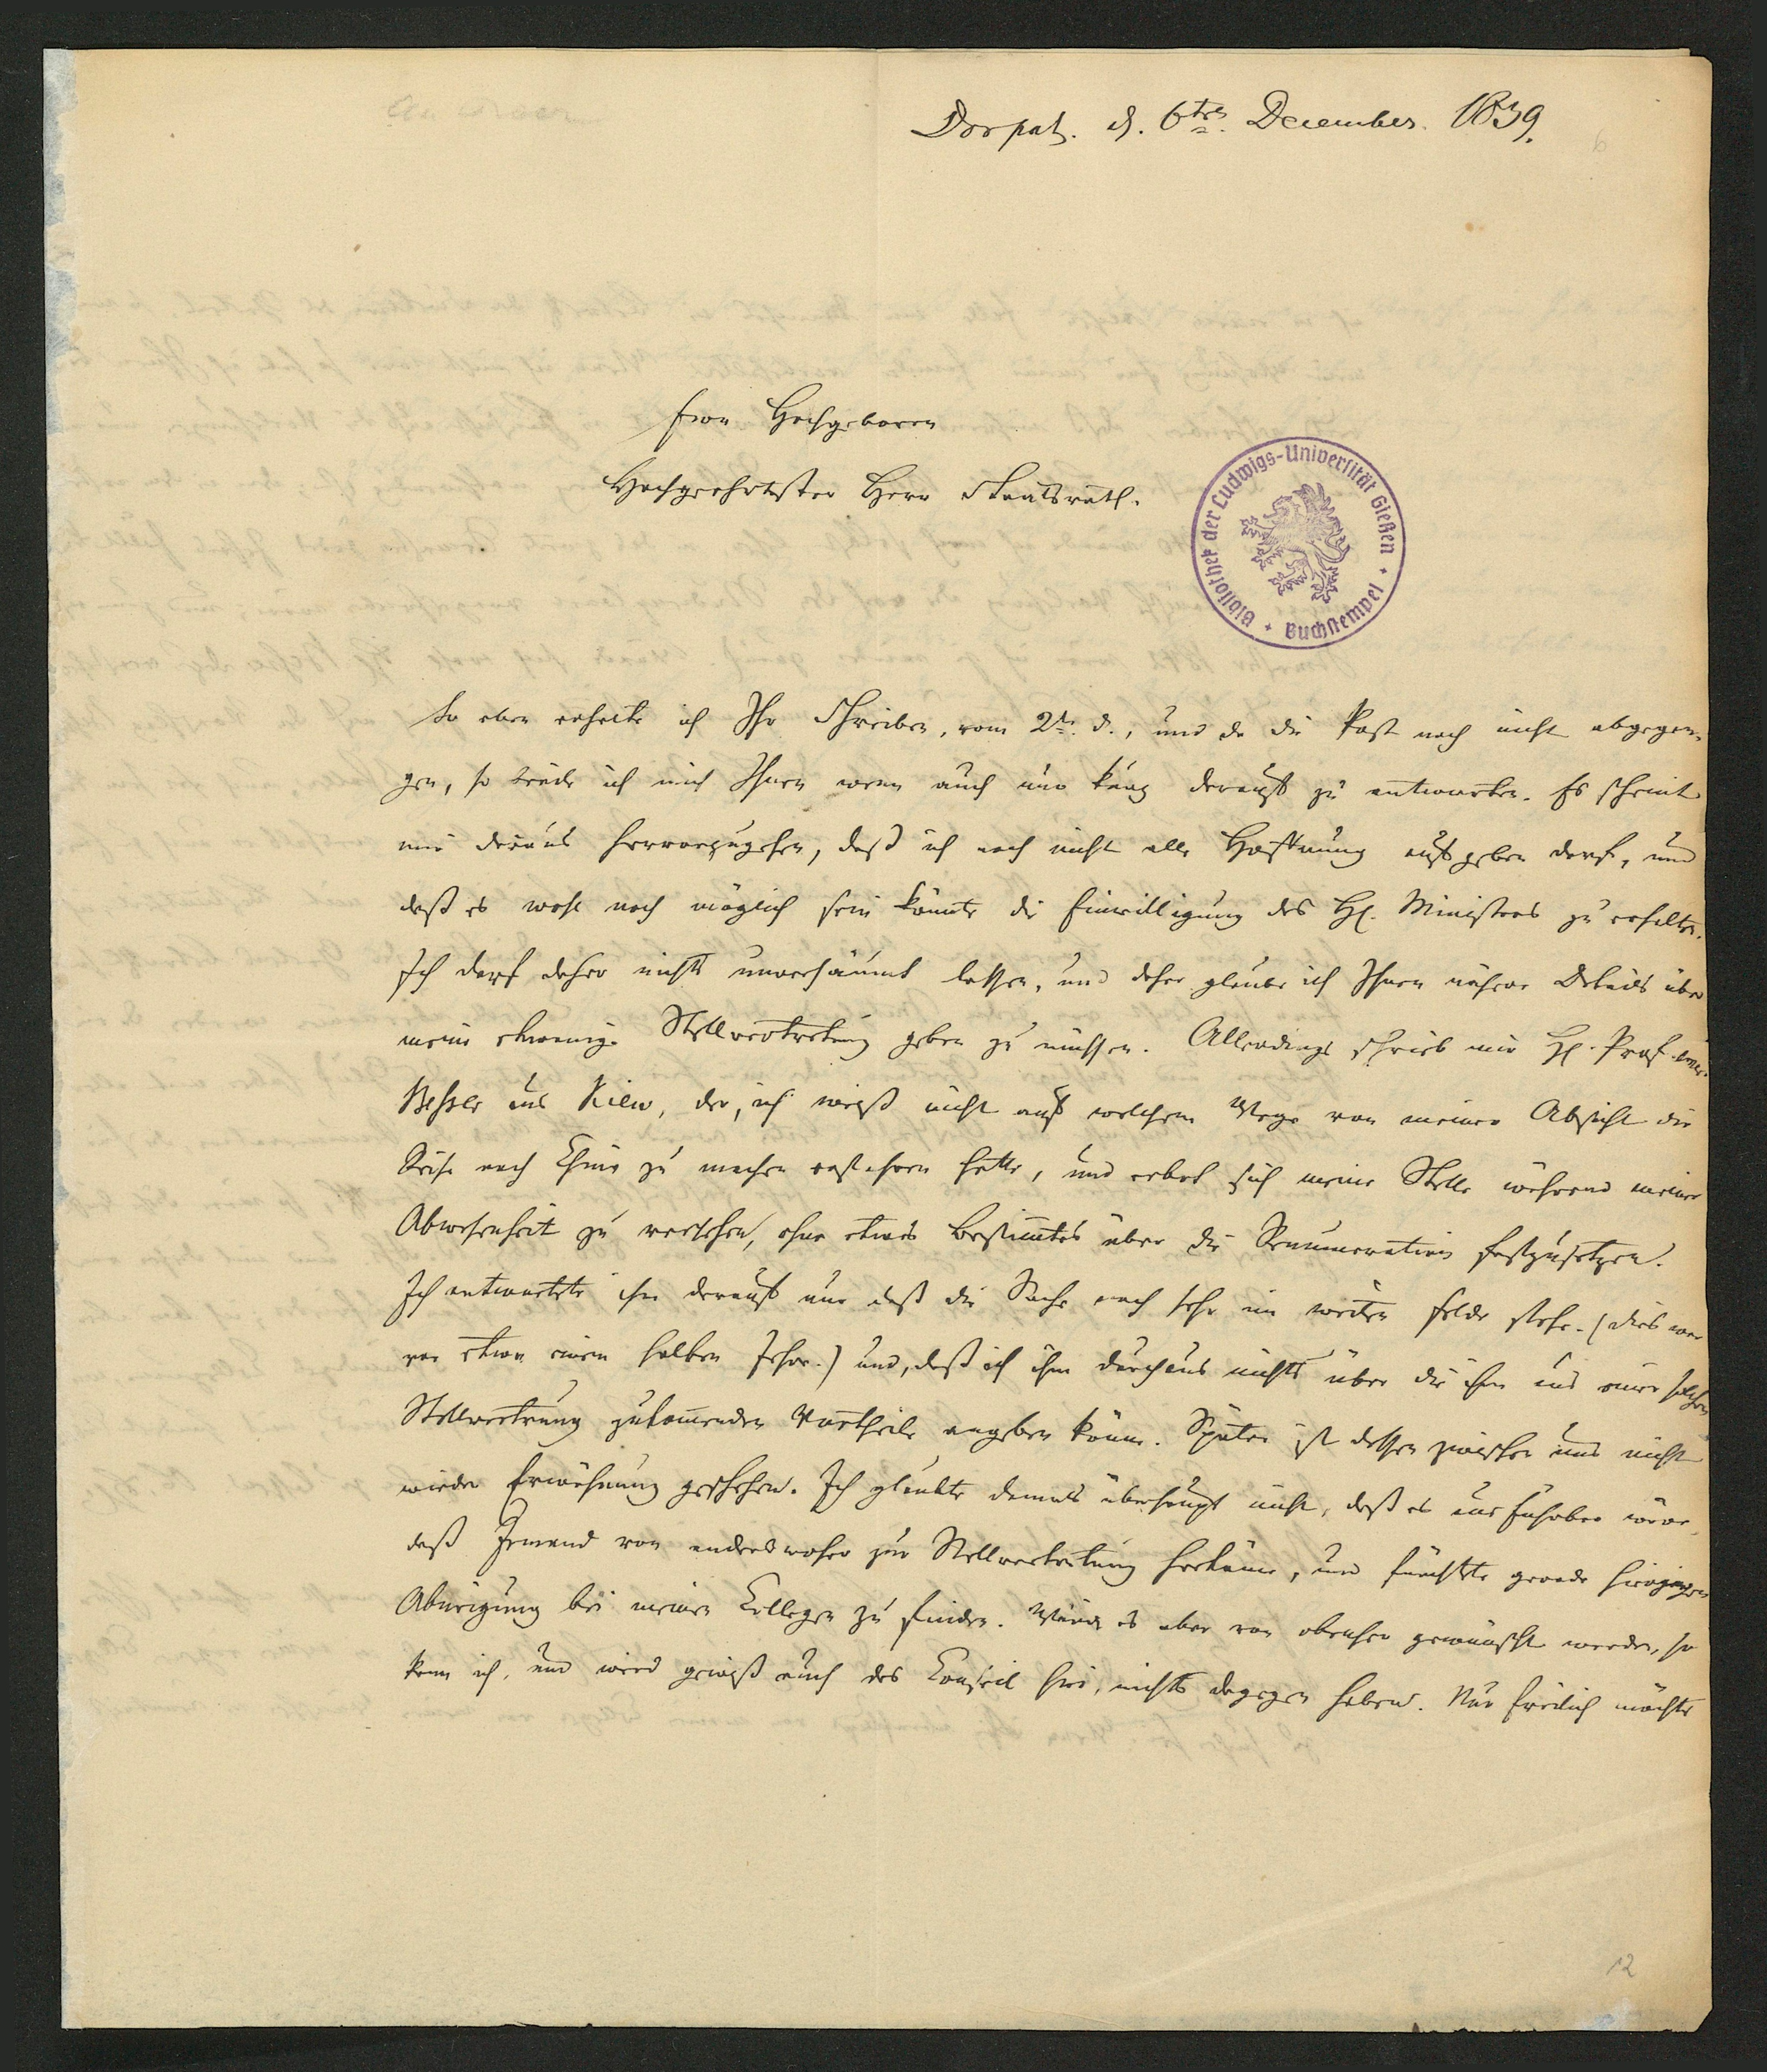 Dorpat. d. 6ten December. 1839.
Ewr Hochgeboren
Hochgeehrtester Herr Staatsrath.
Bibliothek der Ludwigs-Universität Gießen + Buchstempel +
So eben erhalte ich Ihr Schreiben, vom 2ten d., und da die Post noch nicht abgegan-
gen, so beeile ich mich Ihnen wenn auch nur kurz darauf zu antworten. Es scheint
mir daraus hervorzugehen, daß ich noch nicht alle Hoffnung aufgeben darf, und
daß es wohl noch möglich sein könnte die Einwilligung des H. Ministers zu erhalten.
Ich darf daher nichts unversäumt lassen, und daher glaube ich Ihnen nähere Details über
meine etwanige Stellvertretung geben zu müssen. Allerdings schrieb mir H. Prof.
Besser aus Kiew, der, ich weiß nicht auf welchem Wege von meiner Absicht die
Reise nach China zu machen erfahren hatte, und erbot sich meine Stelle während meiner
Abwesenheit zu versehen, ohne etwas Bestimtes über die Renumeration festzusetzen.
Ich antwortete ihm darauf nur daß die Sache noch sehr im weiten Felde stehe. (dies war
vor etwa einem halben Jahre.) und, daß ich ihm durchaus nichts über die ihm aus einer solchen
Stellvertretung zukomenden Vortheile angeben könne. Später ist dessen zwischen uns nicht
wieder Erwähnung geschehen. Ich glaubte damals überhaupt nicht, daß es ausführbar wäre,
daß Jemand von anderswoher zur Stellvertretung herkäme, und fürchtete gerade hiergegen
Abneigung bei meinen Collegen zu finden. Würde es aber von obenher gewünscht werden, so
kann ich, und wird gewiß auch das Conseil hier, nichts dagegen haben. Nur freilich möchte
12